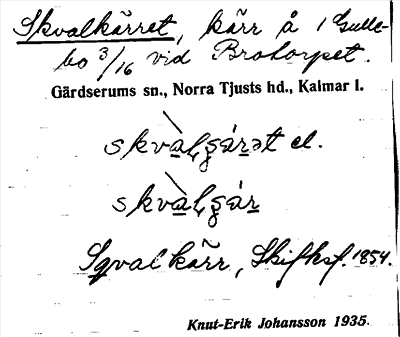 Skvalkärret, kärr å 1 Gulle-
bo 3/16 vid Brotorpet.
Gärdserums sn., Norra Tjusts hd., Kalmar l.
el.
Sqvalkärr, Skifksf. 1854.
Knut-Erik Johansson 1935.